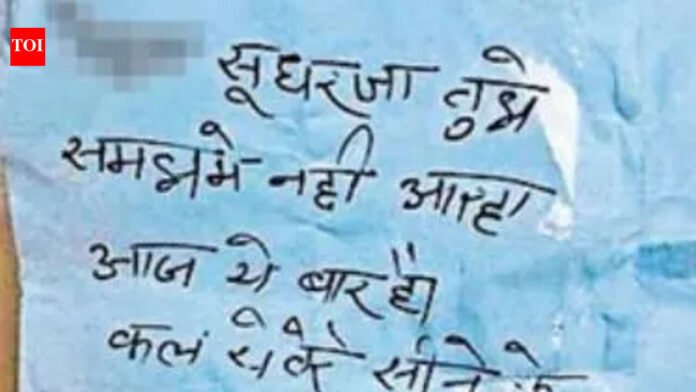 TOI
सूधरजा तुझे
समझमे नही आरहा
आज ये बार है।
कल तेरे सीने के